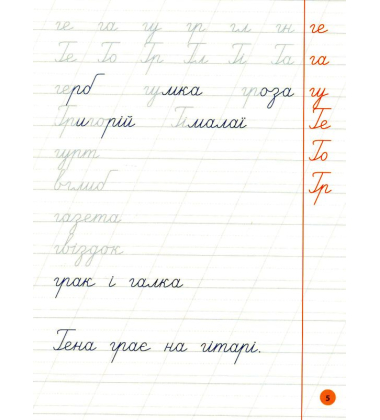 ге га гу гр гл гн ге
Ге Го Гр Гл Гі Га га
герб гумка гроза гу
Григорій Гімалаї Ге
гурт Го
вглиб Гр
газета
гвіздок
грак і галка
Гена грає на гітарі.
5